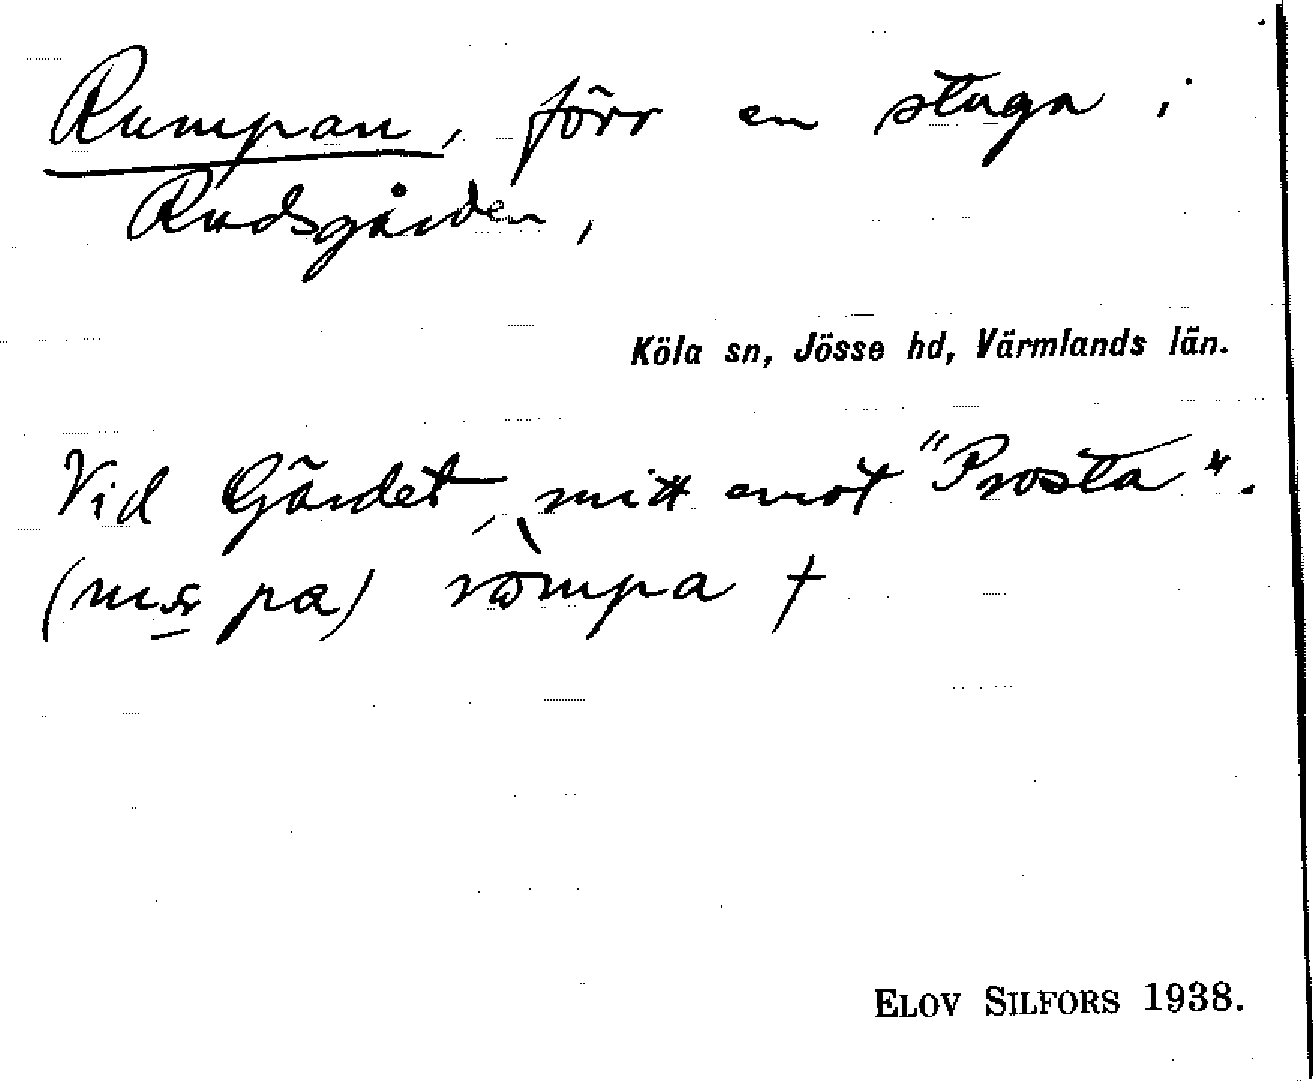 Rumpan, förr en stuga i
Rudsgården,
Köla sn, Jösse hd, Värmlands län.
Vid Gärdet, mitt emot "Prosta".
pa) †
ELOV SILFORS 1938.